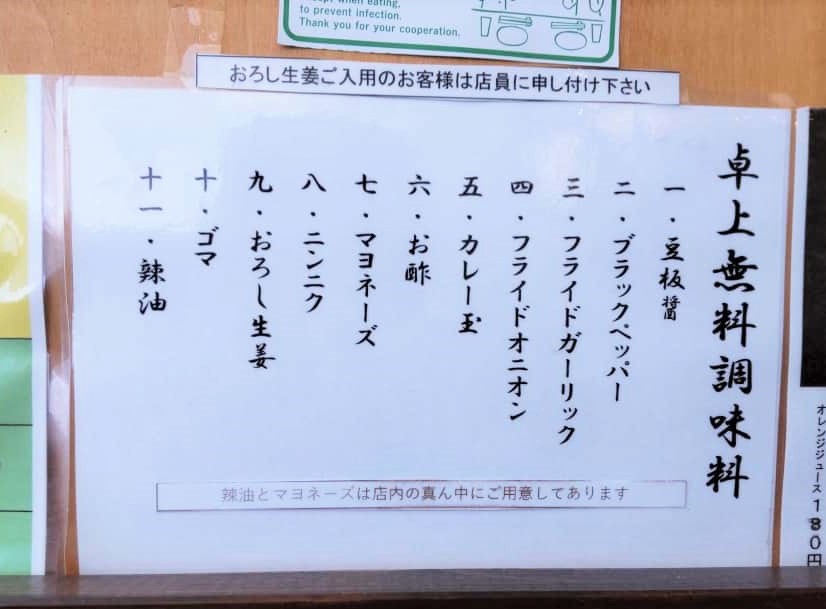 to prevent infection.
Thank you for your cooperation.
おろし生姜ご入用のお客様は店員に申し付け下さい
卓上無料調味料
一・豆板醤
二・ブラックペッパー
三・フライドガーリック
四・フライドオニオン
五・カレー玉
六・お酢
七・マヨネーズ
八・ニンニク
九・おろし生姜
十・ゴマ
十一・辣油
辣油とマヨネーズは店内の真ん中にご用意してあります
オレンジジュース